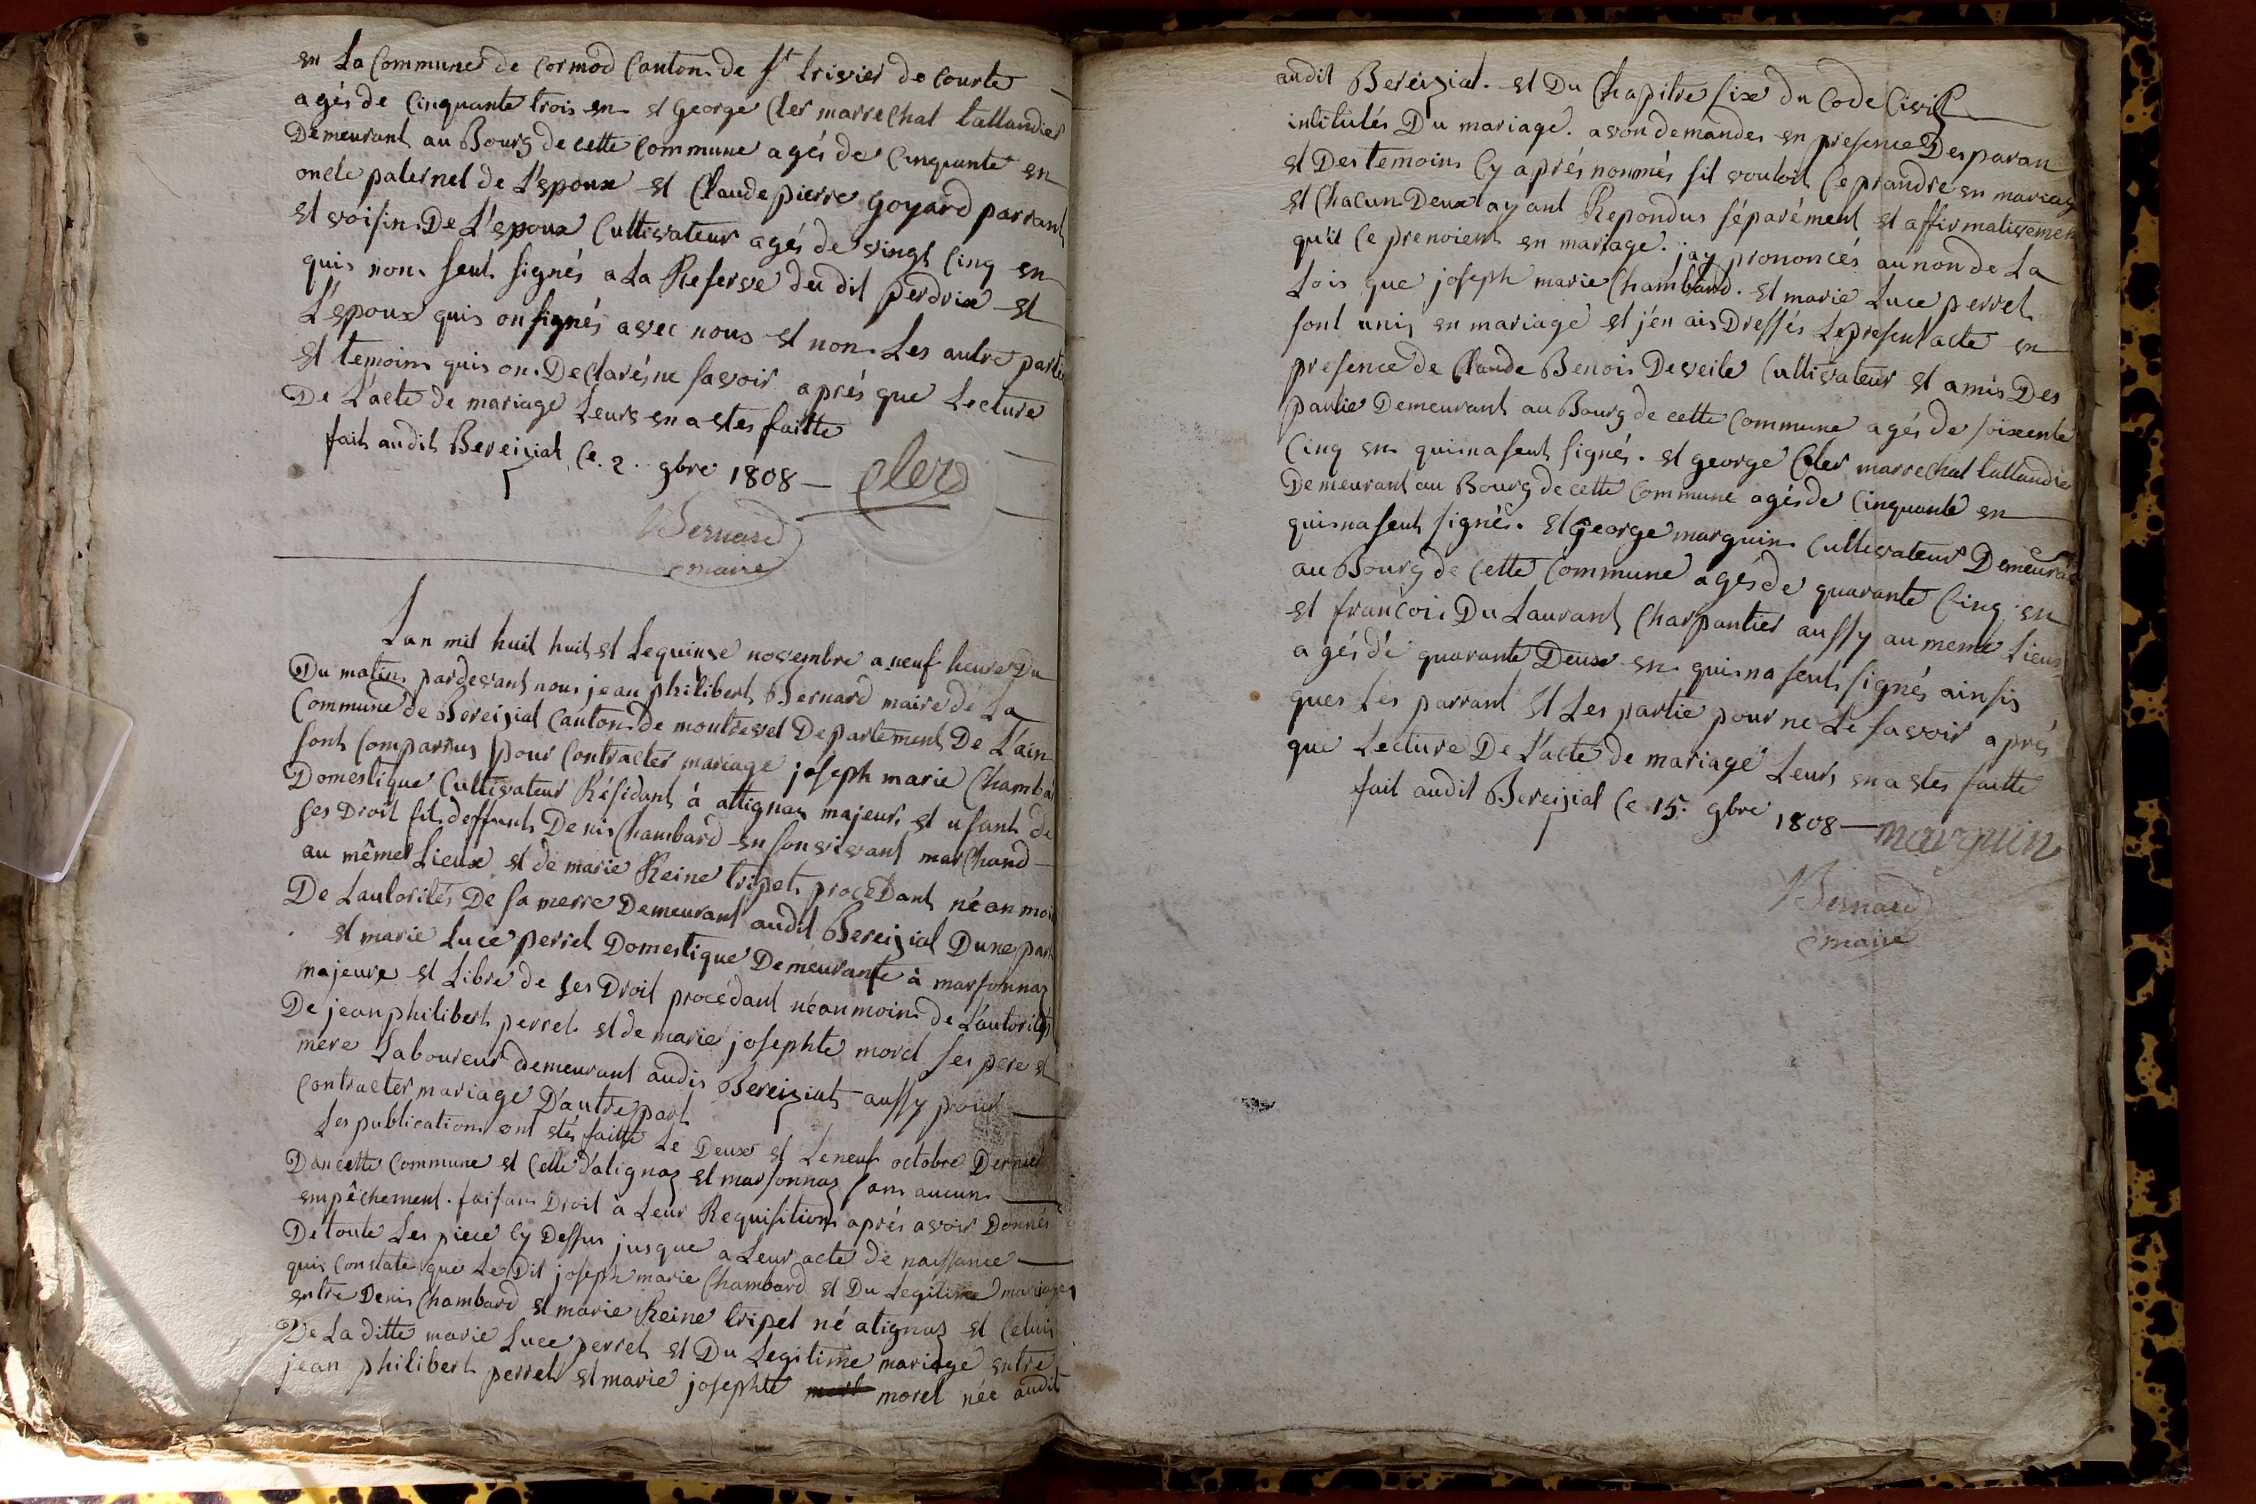 en La Commune de Cormod Canton de St trivier de Courte
agés de Cinquante trois en et George Cler marrechal tallandier
Demeurant au Bourg de cette Commune agés de Cinquante en
oncle paternel de L'epoux et Claude pierre Goyard parrant
et voisin De L'epoux Cultivateur agés de vingt Cinq en
quis non seut signés a La Reserve du dit perdrix et
L'epoux quis on signés avec nous et non Les autre partie
et temoins quis on Declarés ne savoir aprés que Lecture
De L'acte de mariage Leurs en a etes faitte
fait audit Bereiziat Ce 2 9bre 1808 — Cler
Bernard
maire
Lan mil huit huit et Lequinse novembre a neuf heure Du
Du matin pardevant nous jean philibert Bernard maire de La
Commune de Bereiziat Canton de montrevel Departement De L'ain
sont Comparrus pour Contracter mariage joseph marie Chamba
Domestique Cultivateur Résidant à attignaz majeur et usant de
ses Droit fils deffunt Denis Chambard en sonvivant marchand
au même Lieux et de marie Reine tripet procedant néanmoin
De Lautorités De sa merre Demeurant audit Bereiziat Dune part
et marie Luce perret Domestique Demeurante à marsonnaz
majeure et Libre de ses Droit procédant néanmoins de L'autorités
De jean philibert perret et de marie josephte morel ses pere et
mere Laboureur demeurant audis Bereiziat aussy pour
Contracter mariage D'autre part
Les publications ont etés faitte Le Deux et Le neuf octobre Dernier
Dans cette Commune et Celle D'atignaz et marsonnaz sans aucun
empêchement. faisans Droit à Leur Requisition aprés avoir Donnés
De toute Les piece Cy Dessus jusque a Leur acte de naissance
quis Constate que Le Dit joseph marie Chambard et Du Legitime mariage
entre Denis Chambard et marie Reine tripet né atignaz et Celuis
De La ditte marie Luce perret et Du Legitime mariage entre
jean philibert perret et marie josephte morel née audit
audit Bereiziat. et Du Chapitre six du Code Civil
intitulés Du mariage. avon demandes en presence Des paran
et Des temoins Cy aprés nommés sil vouloit Ce prandre en mariag
et Chacun Deux ayant Repondus séparément et affirmativemen
qu'il Ce prenoient en mariage. jay prononcés au non de La
Lois que joseph marie Chambard. et marie Luce perret
sont unis en mariage et j'en ais Dressés Le present acte en
presence de Claude Benois Deveile Cultivateur et amis Des
partie Demeurant au Bourg de cette Commune agés de soixente
Cinq en quis na seut signés. et george Cler marrechal tallandie
Demeurant au Bourg de cette Commune agés de Cinquante en
quis na seut signés. et George marguin Cultivateur Demeurant
au Bourg de Cette Commune agés de quarante Cinq en
et francois Du Laurant Charpantier aussy au meme Lieux
agés de quarante Deux en quis na seut signés ainsis
ques Les parrant et Les partie pour ne Le savoir aprés
que Lecture De L'acte de mariage Leurs en a etes faitte
fait audit Bereiziat Ce 15. 9bre 1808 — marguin
Bernard
maire